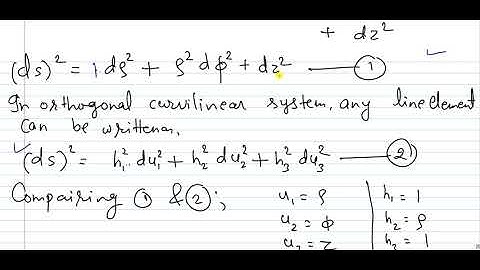 + dz²
(ds)² = 1 dρ² + ρ² dφ² + dz² —— ①
In orthogonal curvilinear system, any line element
can be written as,
(ds)² = h₁² du₁² + h₂² du₂² + h₃² du₃² —— ②
Compairing ① & ② ;
u₁ = ρ | h₁ = 1
u₂ = φ | h₂ = ρ
u₃ = z | h₃ = 1